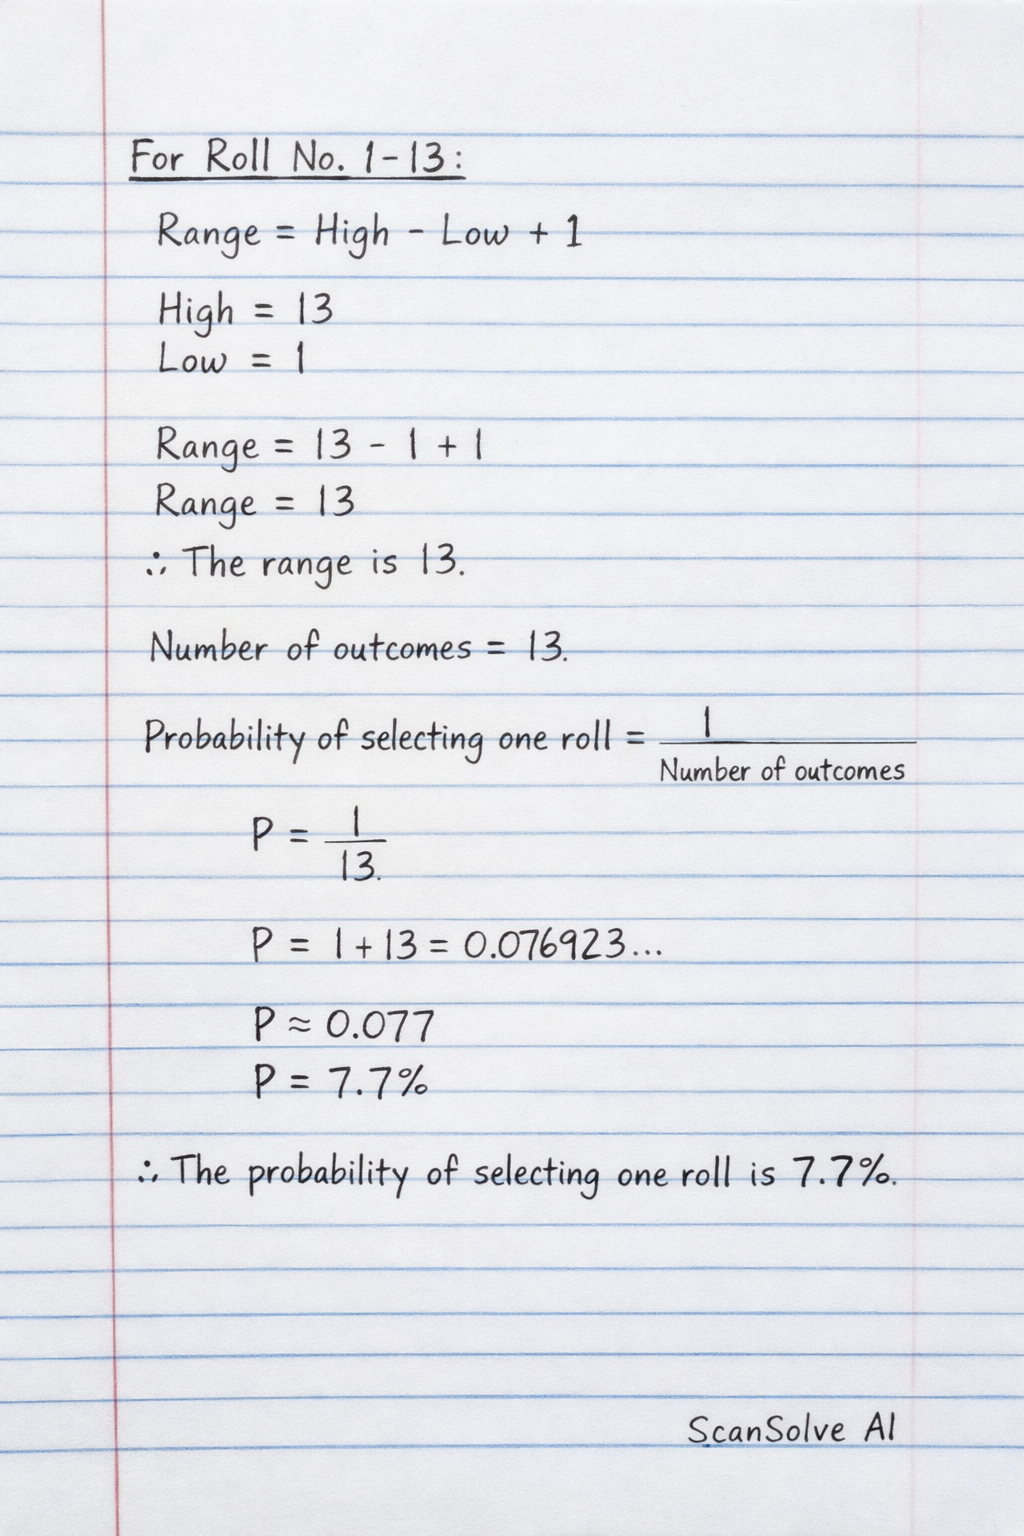 For Roll No. 1-13:
Range = High - Low + 1
High = 13
Low = 1
Range = 13 - 1 + 1
Range = 13
∴ The range is 13.
Number of outcomes = 13.
Probability of selecting one roll = 1
Number of outcomes
P = 1
13.
P = 1 + 13 = 0.076923...
P ≈ 0.077
P = 7.7%
∴ The probability of selecting one roll is 7.7%.
ScanSolve AI